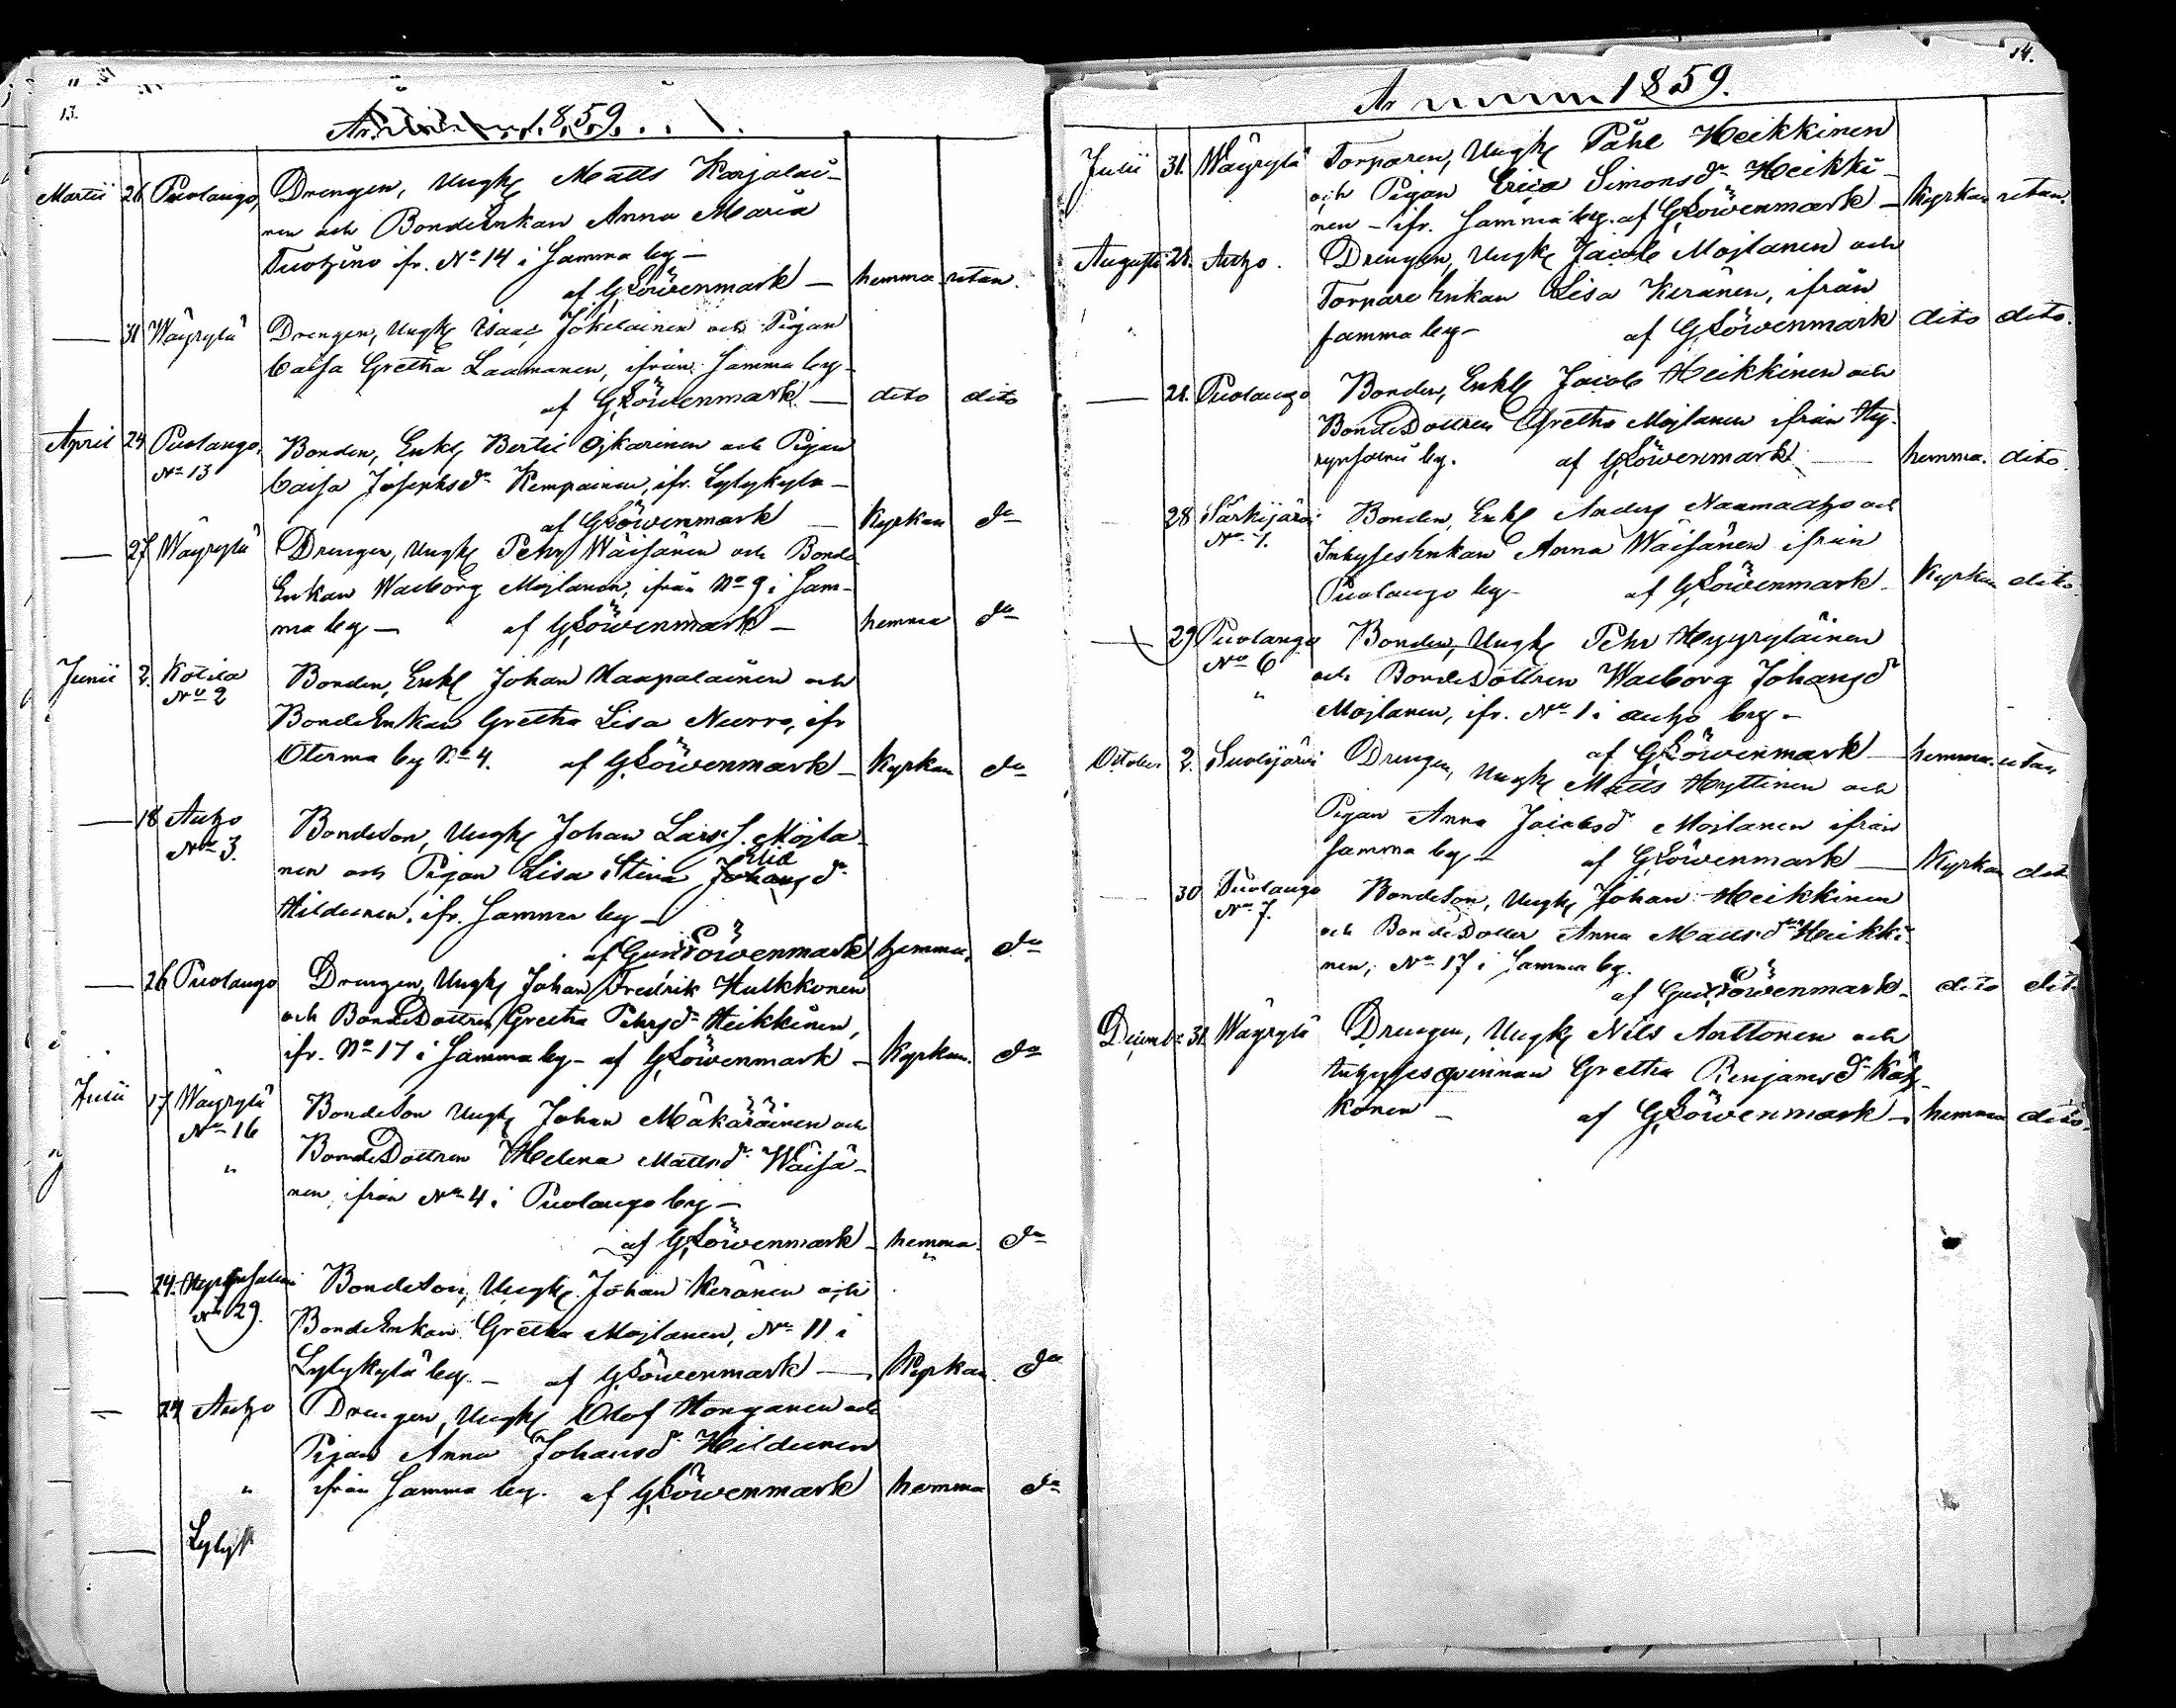 13.
År 1859.
Martii 26 Puolango, Drengen, Ungk Matts Karjalai-
nen och BondeEnkan Anna Maria
Tuotzino ifr. No 14 i Samma by -
af G. Löwenmark - hemma utan.
31 Wäyrylä Drengen, Ungk Isaac Jokelainen och Pigan
Caisa Gretha Laamanen, ifrån Samma by -
af G. Löwenmark - dito dito
April 24 Puolango, Bonden, Enkl Bertil Ojkarinen och Pigan
No 13 Caisa Josephsdr Kempainen, ifr. Lylykylä -
af G. Löwenmark - Kyrkan do
27 Wäyrylä Drengen, Ungk Pehr Wäisänen och Bonde
Enkan Walborg Mojlanen, ifrån No 9 i Sam-
ma by - af G. Löwenmark - hemma do
Junii 2. Kotila Bonden, Enkl Johan Haapalainen och
No 2 BondeEnkan Gretha Lisa Nurro, ifr
Oterma by No 4. af G. Löwenmark - Kyrkan do
18 Autzo Bondeson, Ungk Johan Lars S. Mojla-
No 3. nen och Pigan Lisa Stina Johansdr Elia
Hildunen, ifr. Samma by -
af Gust Löwenmark hemma, do
26 Puolango Drengen, Ungk Johan Fredrik Hulkkonen
och BondeDottren Gretha Pehrsdr Heikkinen,
ifr. No 17 i Samma by - af G. Löwenmark - Kyrkan. do
Julii 17 Wäyrylä Bondeson Ungk Johan Mäkäräinen och
No 16 BondeDottren Helena Mattsdr Wäisä-
" nen, ifrån No 4 i Puolango by -
af G. Löwenmark - hemma. do
24. Hyrynsalmi Bondeson, Ungk. Johan Keränen och
No 29. BondeEnkan Gretha Mojlanen, No 11 i
Lylykylä by. - af G. Löwenmark - Kyrkan. do
24 Autzo Drengen, Ungk Olof Honganen och
Pigan Anna Johansdr Hildunen
" ifrån Samma by. af G. Löwenmark hemma do
Lylyk
14.
År 1859.
Julii 31. Wäyrylä Torparen, Ungk Påhl Heikkinen
och Pigan Erica Simonsdr Heikki-
nen - ifr. Samma by. af G. Löwenmark - Kyrkan utan.
Augusti 21. Autzo. Drengen, Ungk Jacob Mojlanen och
TorpareEnkan Lisa Keränen, ifrån
samma by - af G. Löwenmark dito dito.
21. Puolango Bonden, Enkl Jacob Heikkinen och
BondeDottren Gretha Mojlanen ifrån Hy-
rynsalmi by. af G. Löwenmark - hemma. dito.
28 Särkijärvi Bonden, Enkl Anders Naamatzo och
No 1. InhysesEnkan Anna Wäisänen ifrån
Puolango by - af G. Löwenmark - Kyrkan dito
29 Puolango Bonden, Ungk Pehr Hyyryläinen
No 6 och BondeDottren Walborg Johansdr
" Mojlanen, ifr. No 1 i Autzo by -
af G. Löwenmark - hemma. utan
October 2. Suolijärvi Drengen, Ungk Matts Hyttinen och
Pigan Anna Jacobsdr Mojlanen ifrån
Samma by - af G. Löwenmark - Kyrkan dit
30 Puolango Bondeson, Ungk Johan Heikkinen
No 7. och BondeDotter Anna Mattsdr Heikki-
nen, No 17 i Samma by.
af Gust Löwenmark - dito dit
Decembr 31. Wäyrylä Drengen, Ungk Nils Anttonen och
Inhysesqvinnan Gretha Benjamsdr
konen - af G. Löwenmark - hemma dito.